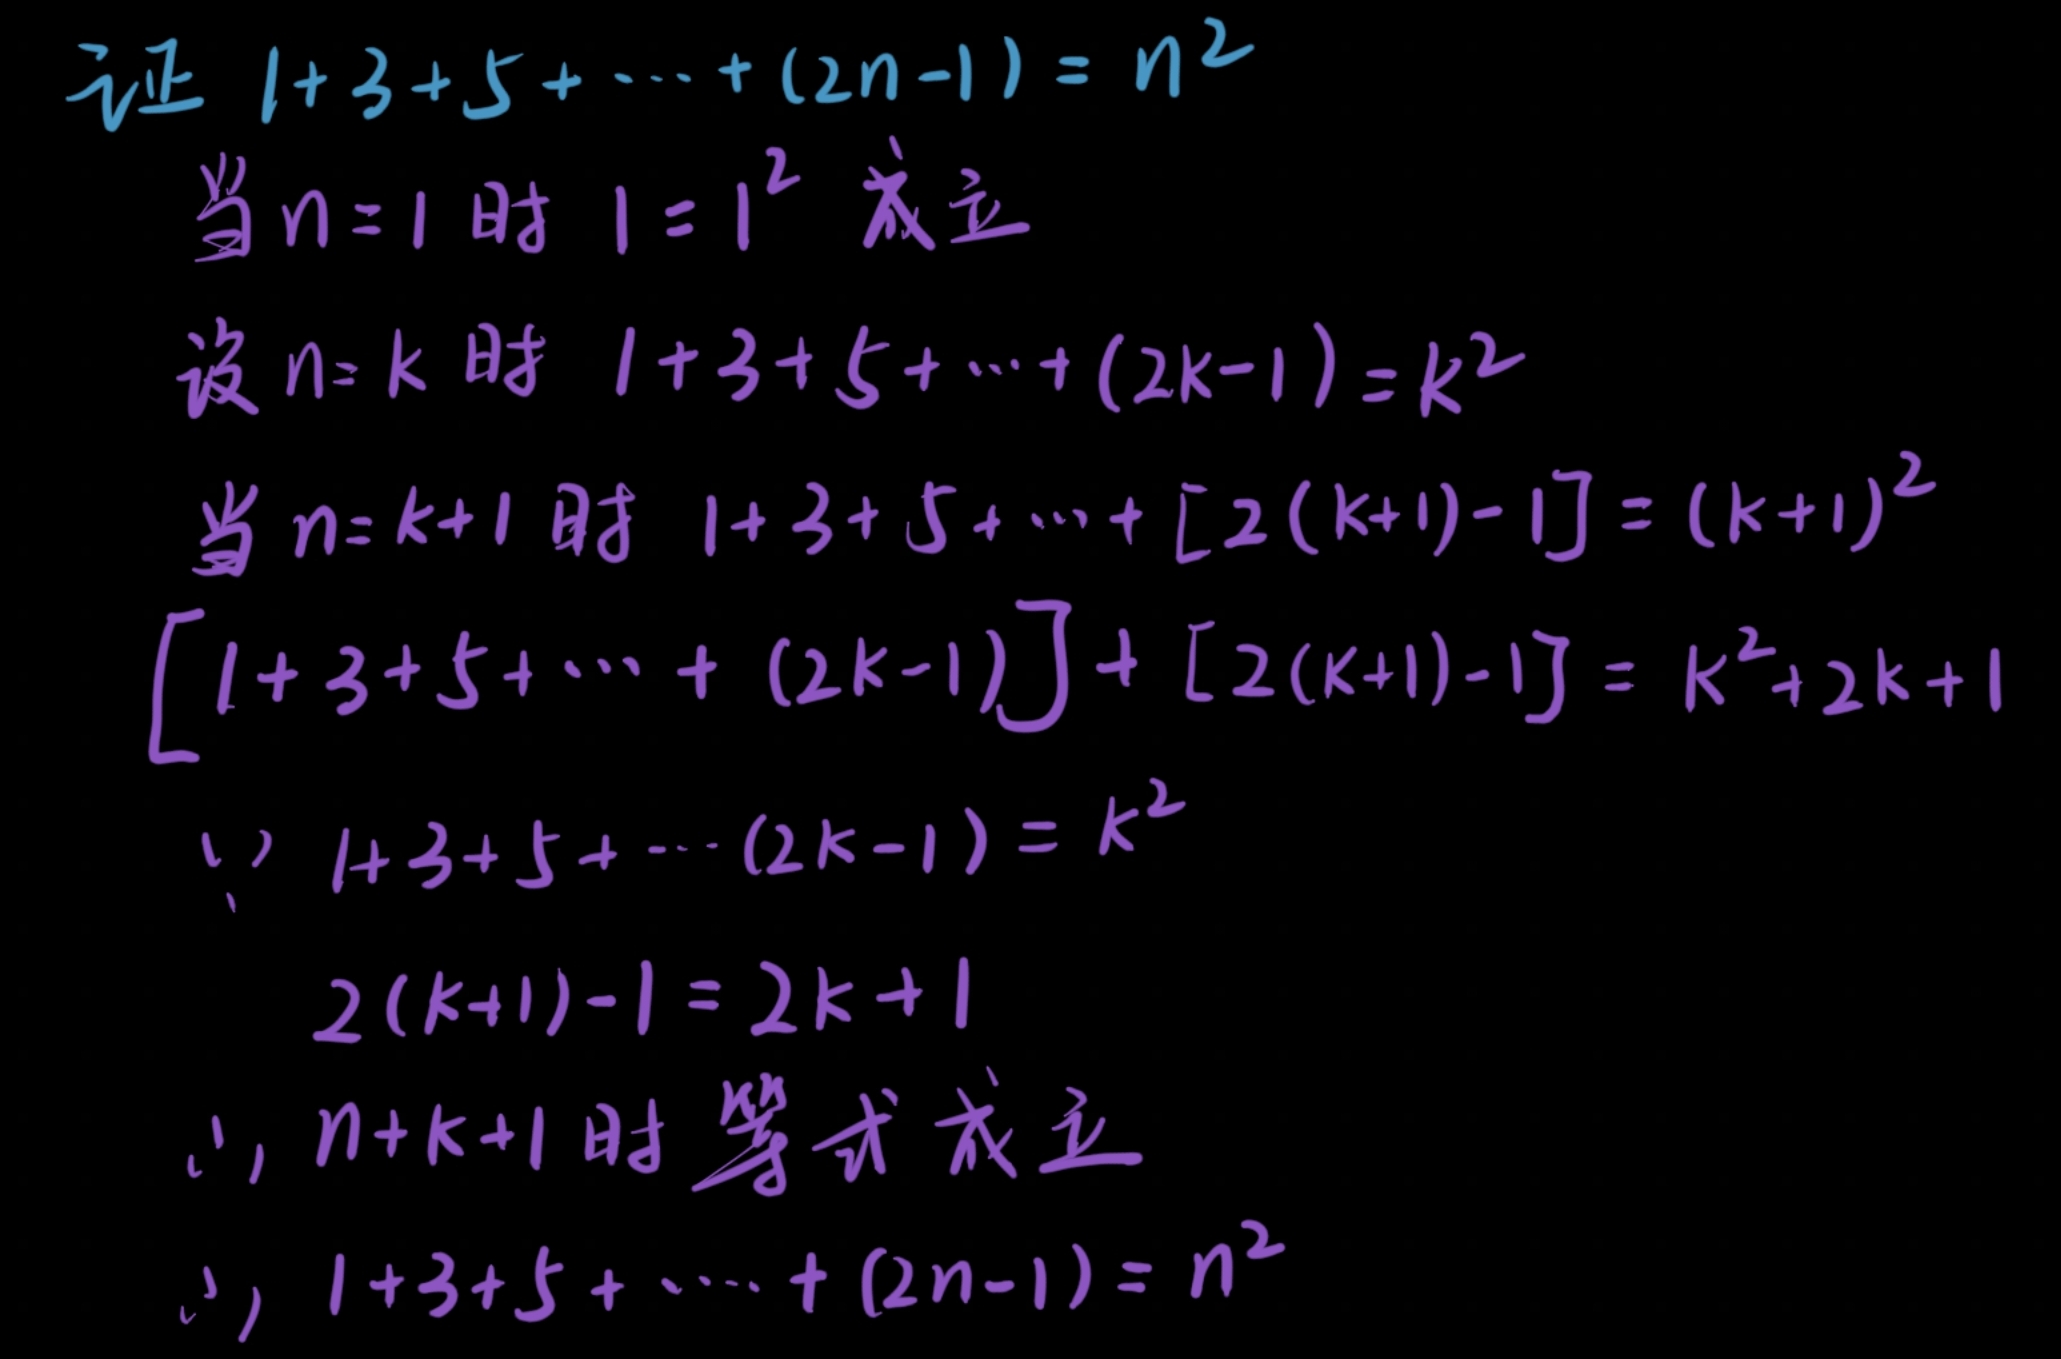 证 1+3+5+……+(2n-1)=n²
当n=1时 1=1² 成立
设n=k时 1+3+5+…+(2k-1)=k²
当n=k+1时 1+3+5+…+[2(k+1)-1]=(k+1)²
[1+3+5+…+(2k-1)]+[2(k+1)-1]=k²+2k+1
∵ 1+3+5+……(2k-1)=k²
2(k+1)-1=2k+1
∴ n+k+1时等式成立
∴ 1+3+5+……+(2n-1)=n²